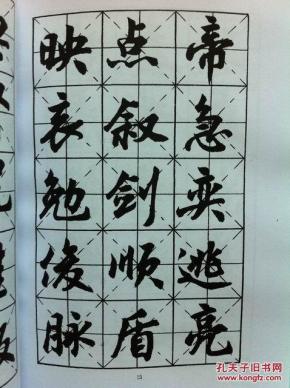 帝急奕逃亮
点叙剑顺盾
映哀勉俊脉
孔夫子旧书网
KONGFZ.COM